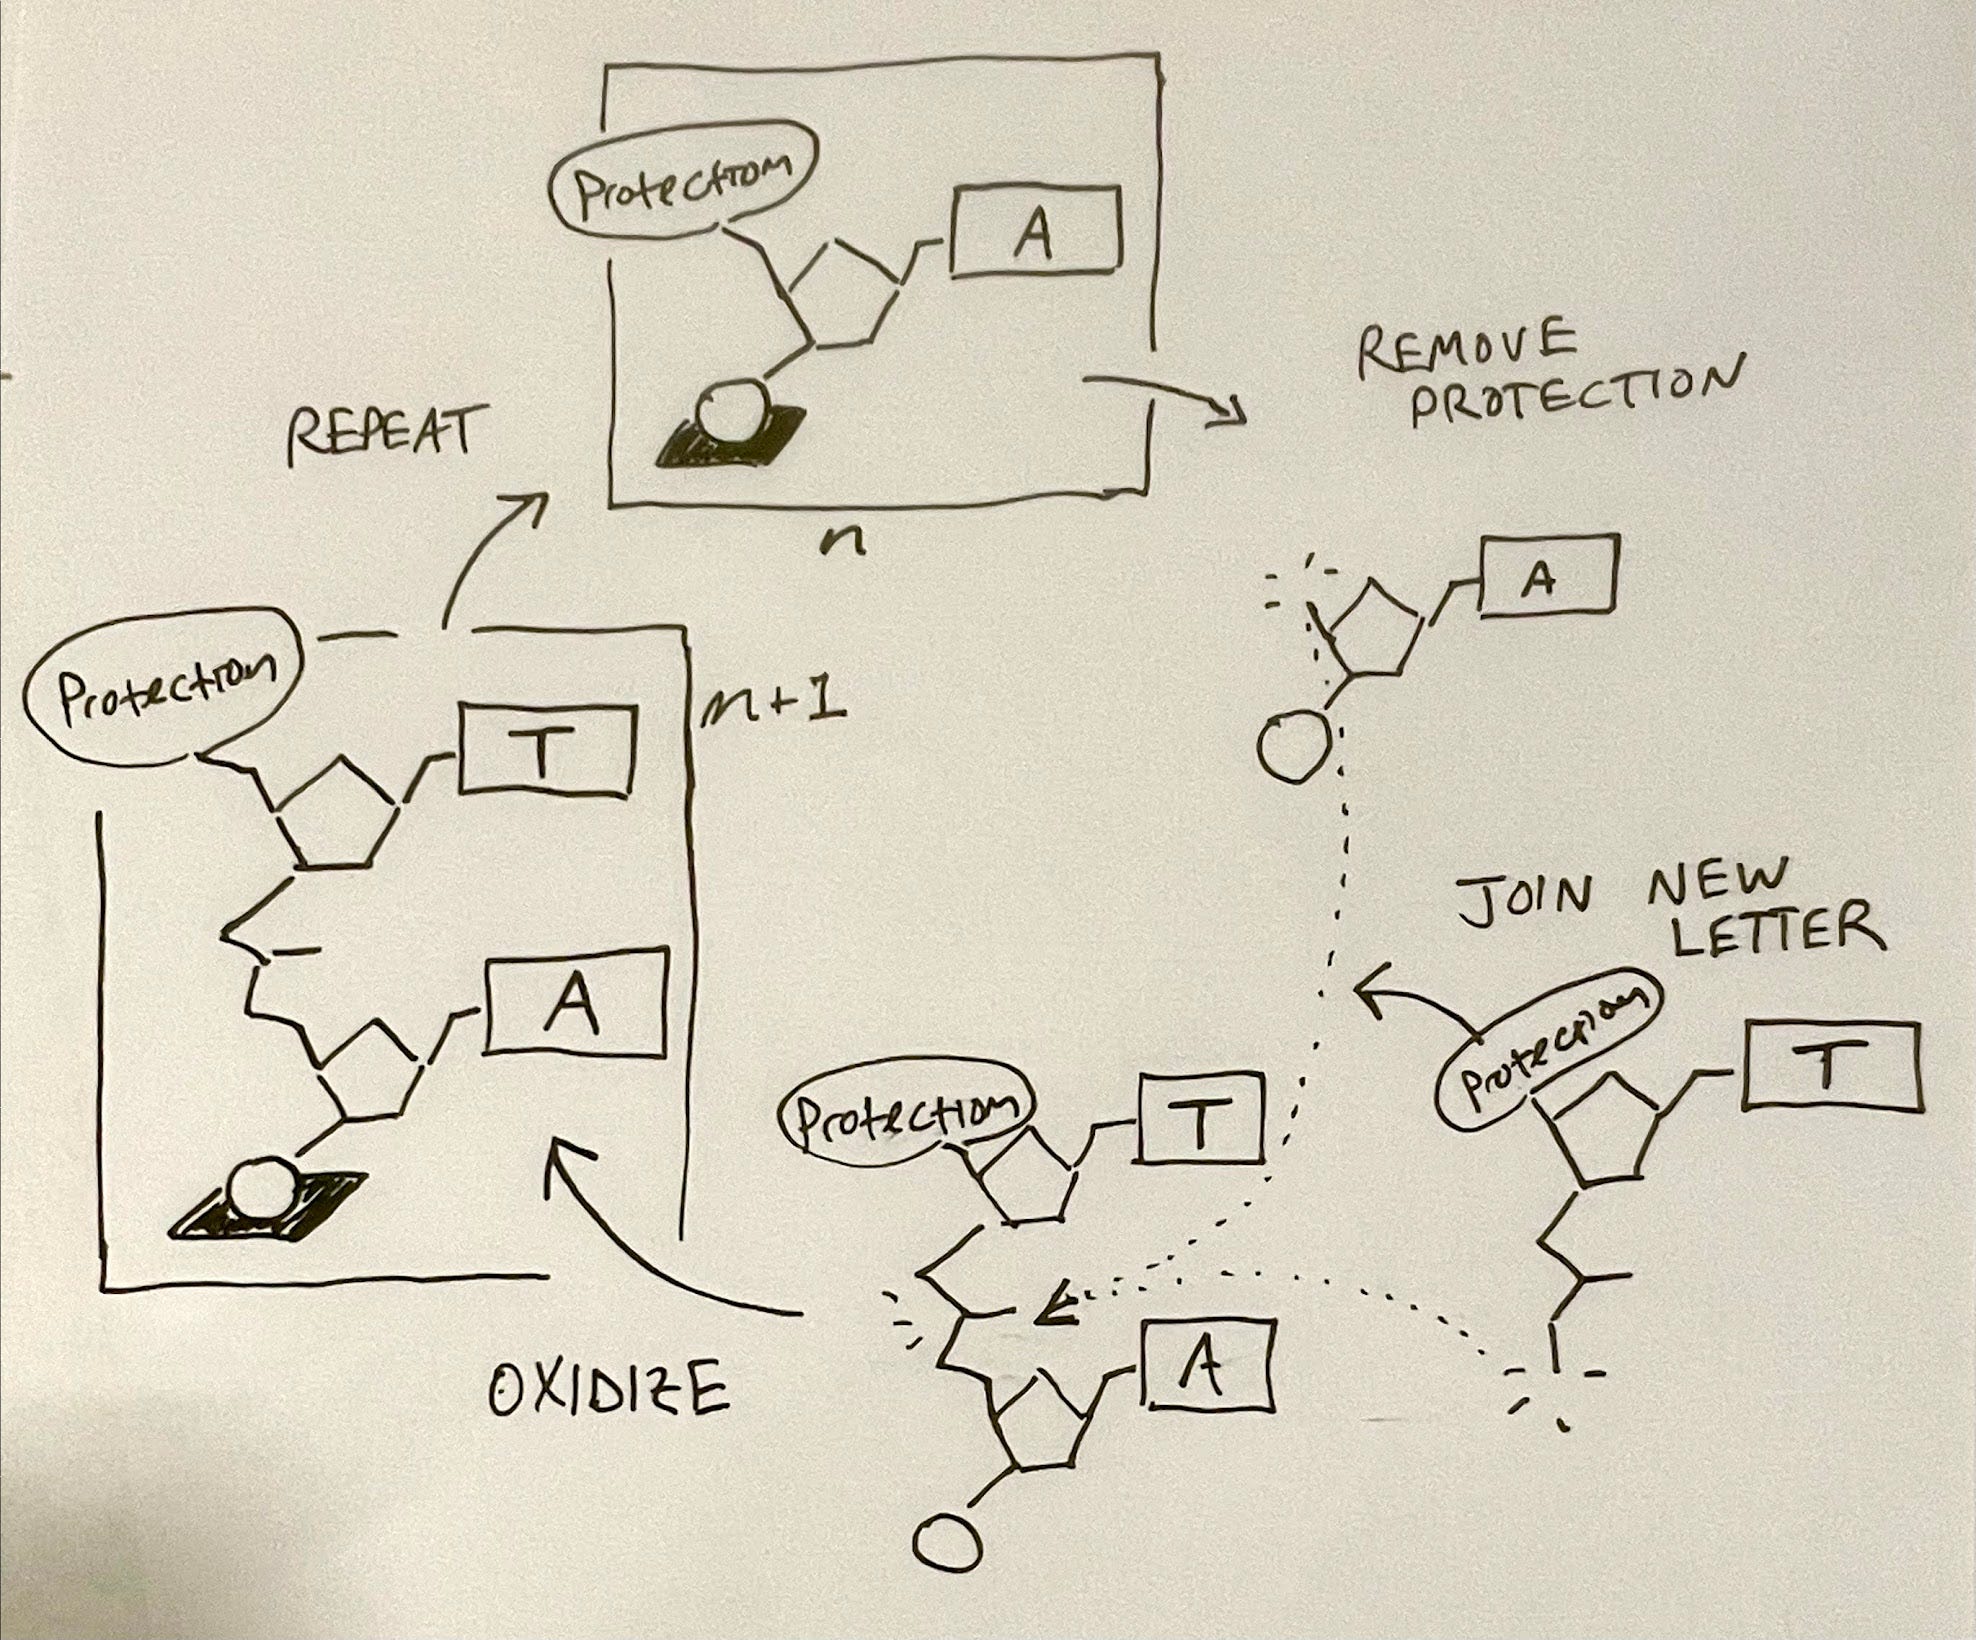 Protection
A
n
REMOVE
PROTECTION
A
JOIN NEW
LETTER
Protection
T
Protection
T
A
OXIDIZE
Protection
T
n+1
A
REPEAT